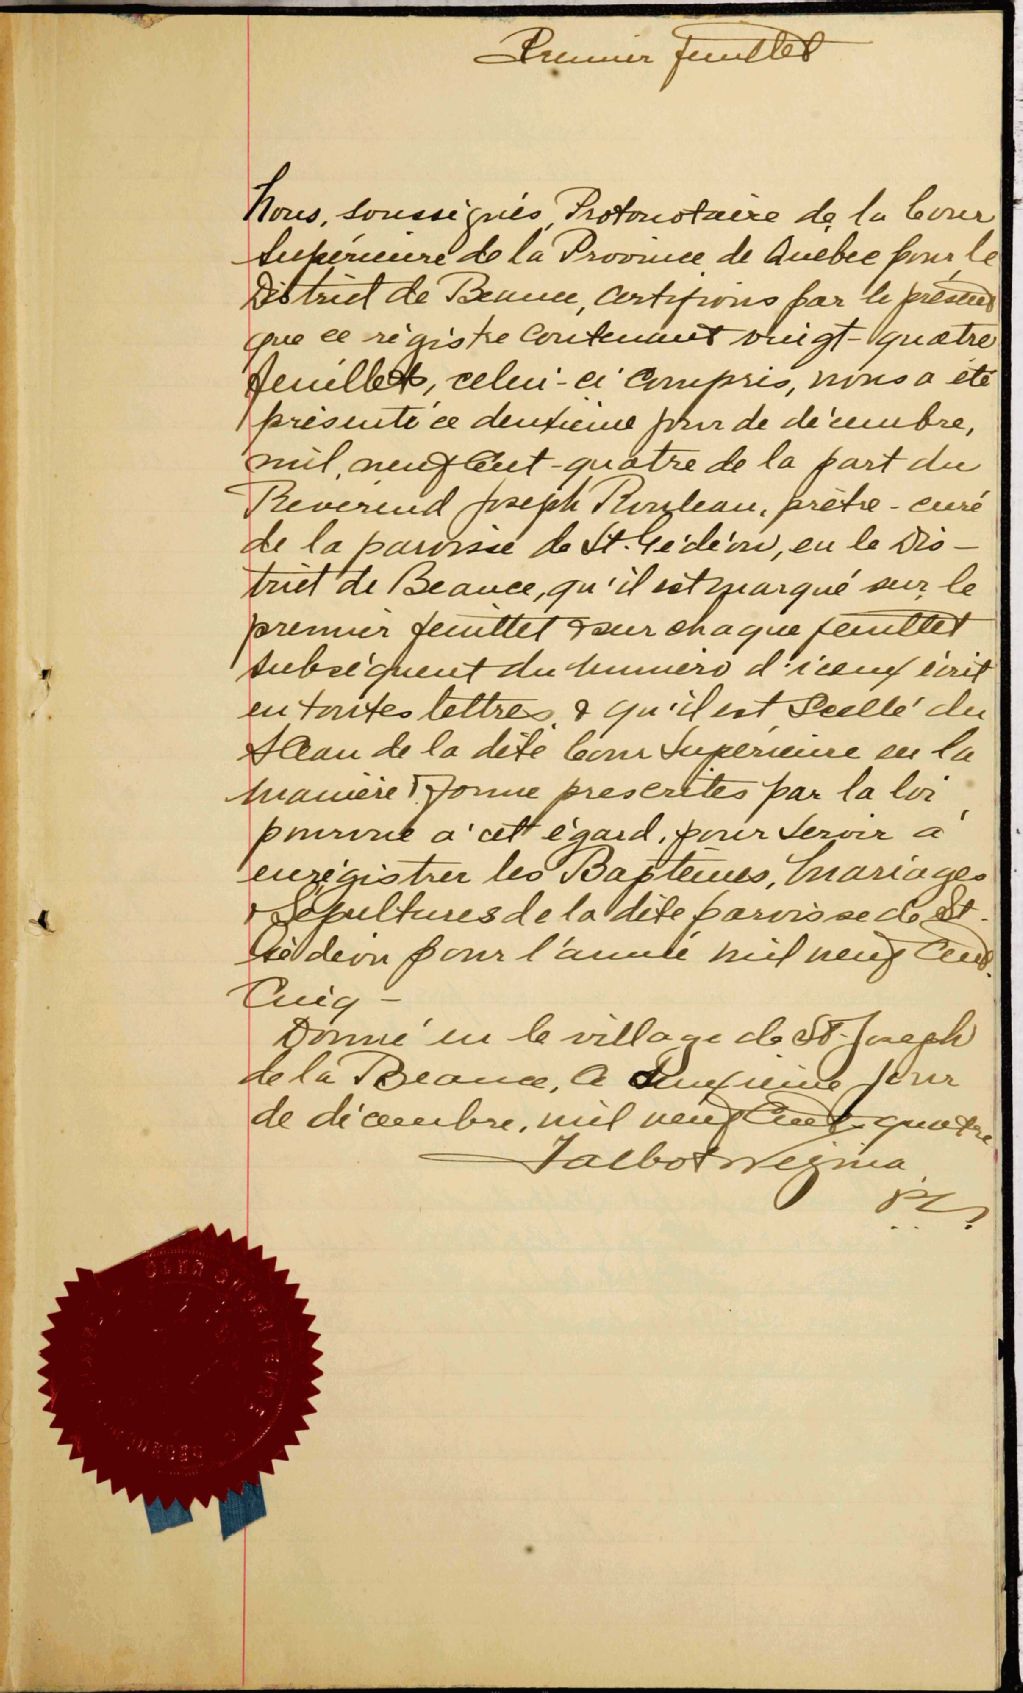 Premier feuillet
Nous, soussignés, Protonotaire de la Cour
Supérieure de la Province de Québec pour le
District de Beauce, certifions par le présent
que ce régistre contenant vingt-quatre
feuillets, celui-ci compris, nous a été
présenté ce deuxième jour de décembre,
mil neuf cent-quatre de la part du
Révérend Joseph Rouleau, prêtre-curé
de la paroisse de St. Gédéon, en le Dis-
trict de Beauce, qu'il est marqué sur le
premier feuillet & sur chaque feuillet
subséquent du numéro d'iceux écrit
en toutes lettres & qu'il est Scellé du
Sceau de la dite Cour Supérieure en la
manière & forme prescrites par la loi
pourvue à cet égard, pour servir à
enrégistrer les Baptêmes, Mariages
& Sépultures de la dite paroisse de St.
Gédéon pour l'année mil neuf Cent
Cinq -
Donné en le village de St-Joseph
de la Beauce, ce deuxième jour
de décembre, mil neuf Cent-quatre
Talbot & Vézina
COUR SUPERIEURE